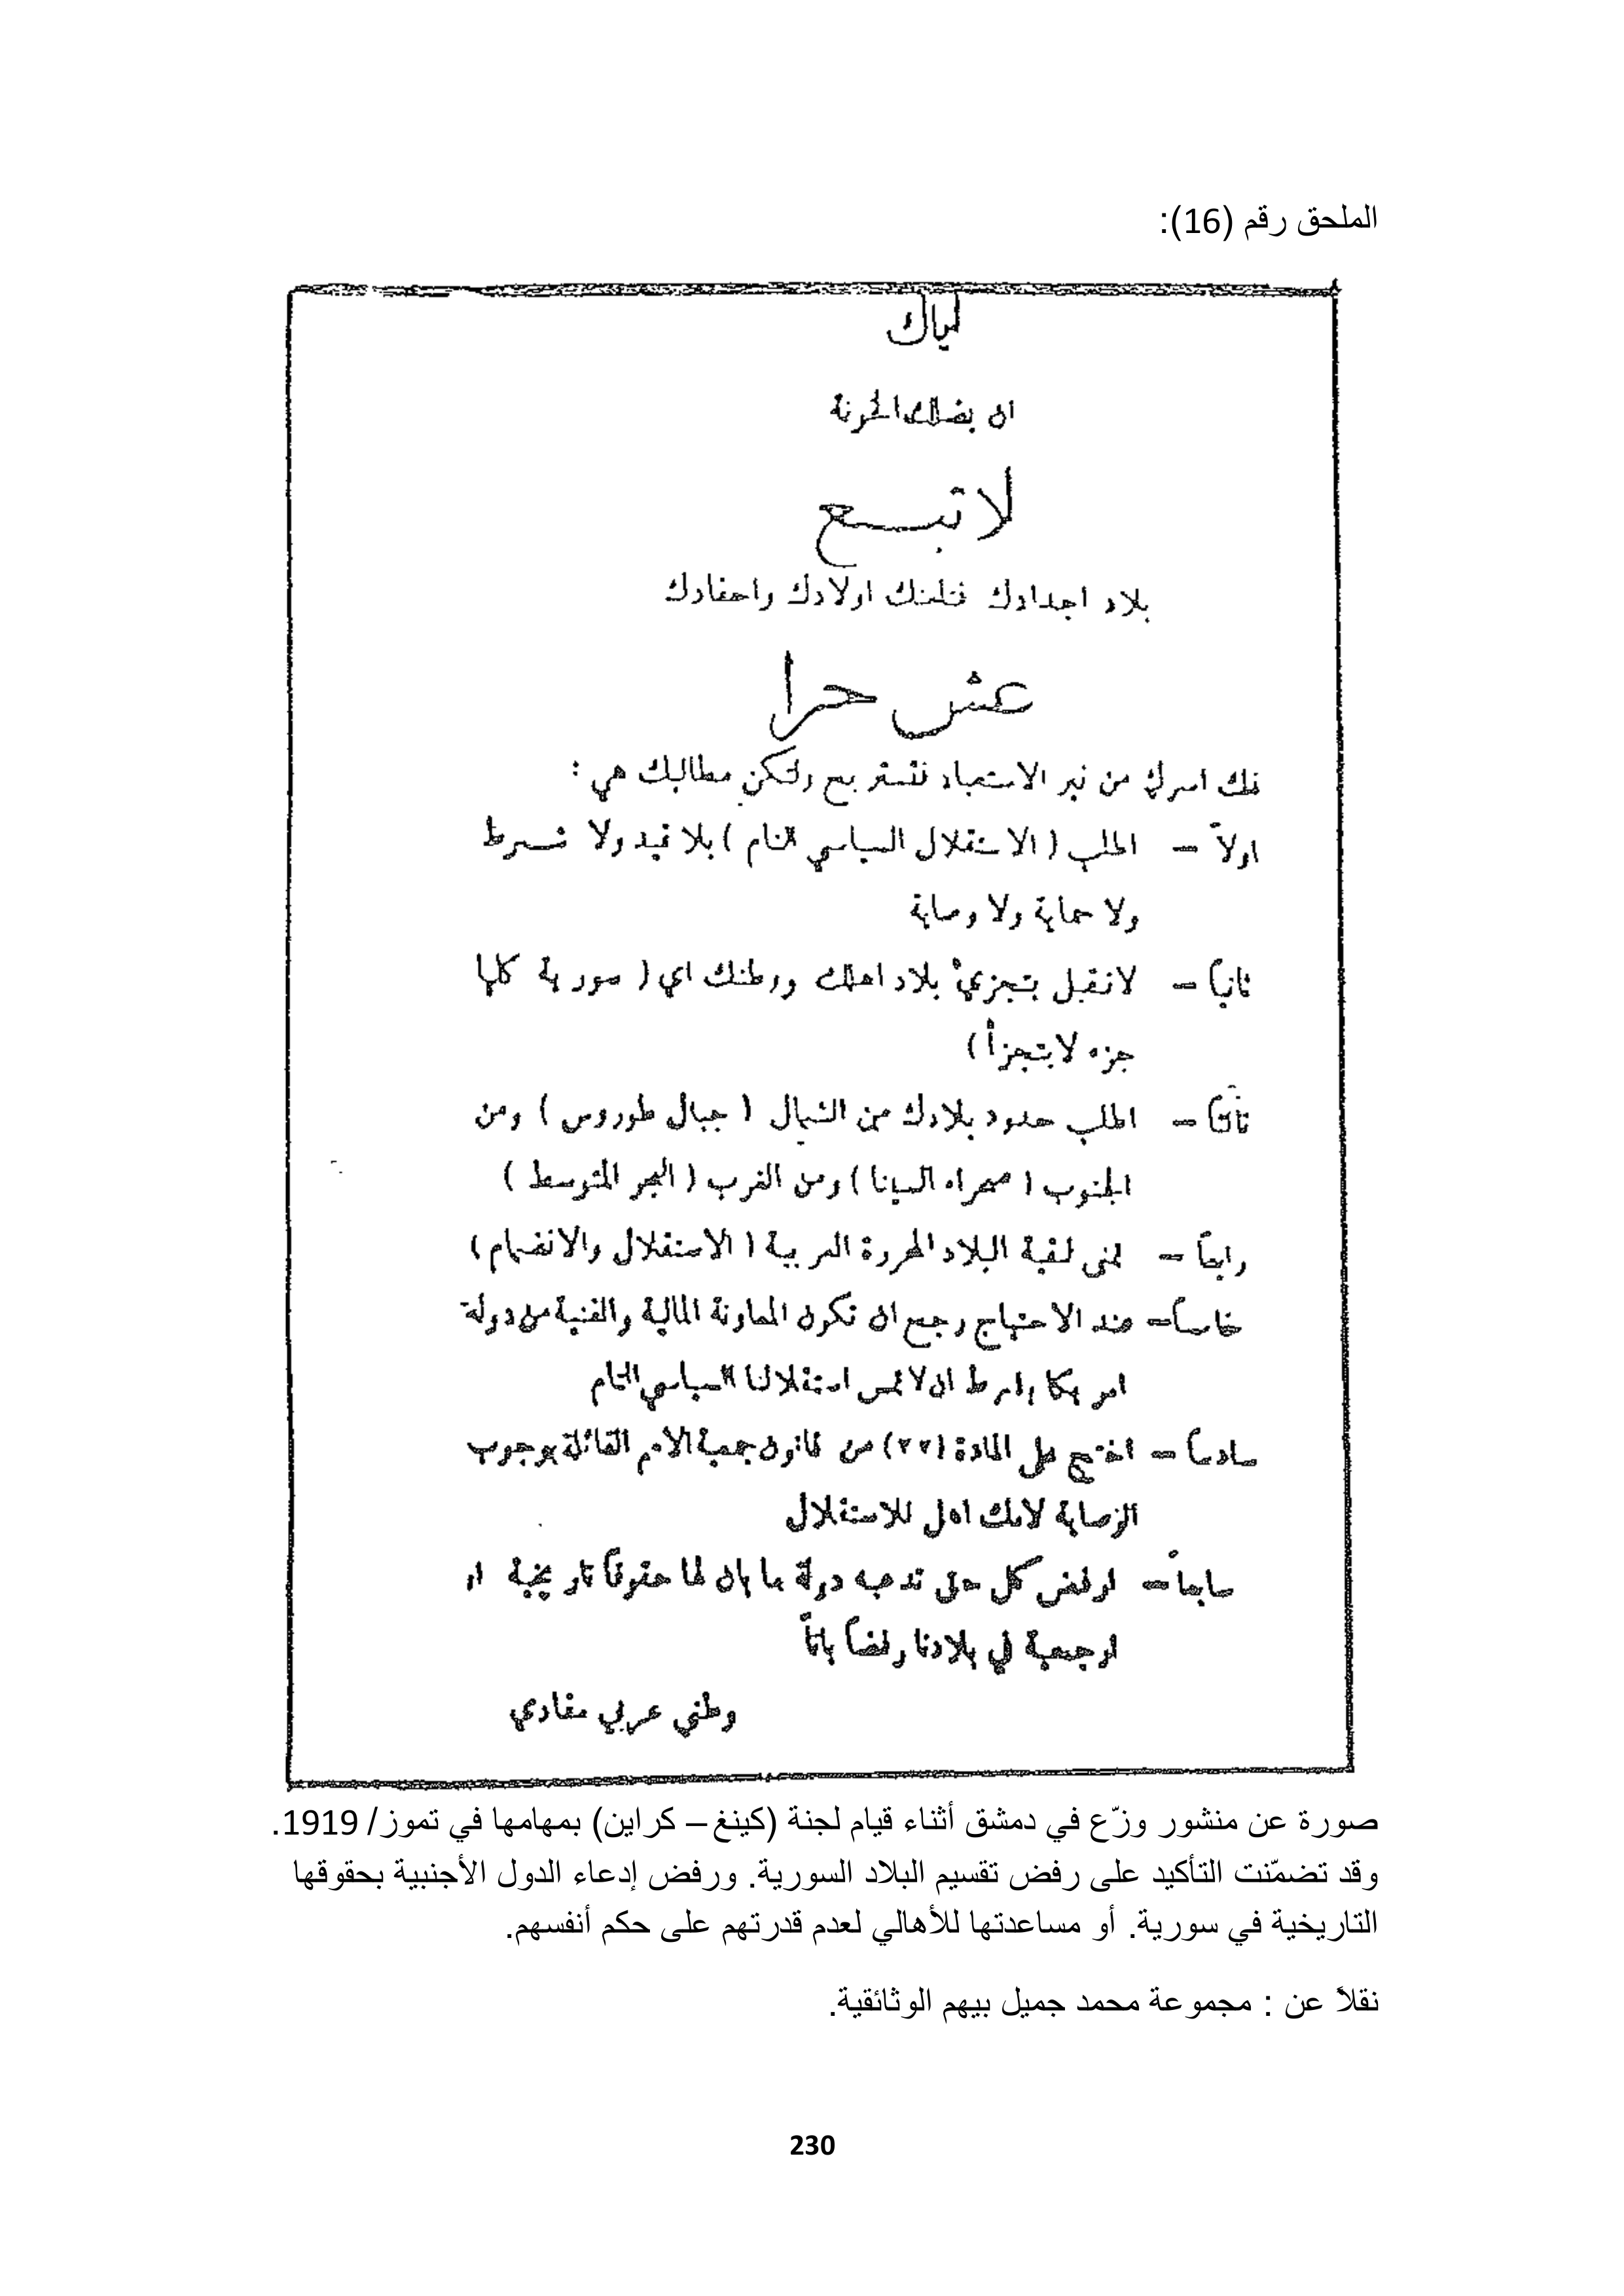 الملحق رقم (16):
اياك
ان يضلك الخونة
لا تبع
بلاد اجدادك فتلعنك اولادك واحفادك
عش حرا
فك اسرك من نير الاستعباد فتستريح ولتكن مطالبك هي :
اولاً – اطلب ( الاستقلال السياسي التام ) بلا قيد ولا شرط
ولا حماية ولا وصاية
ثانياً – لا تقبل بتجزيء بلاد اهلك ووطنك اي ( سورية كلها
جزء لا يتجزأ )
ثالثاً – اطلب حدود بلادك من الشمال ( جبال طوروس ) ومن
الجنوب ( صحراء السينا ) ومن الغرب ( البحر المتوسط )
رابعاً – تمنى لبقية البلاد المحررة العربية ( الاستقلال والانضمام )
خامساً – عند الاحتياج رجح ان تكون المعاونة المالية والفنية من دولة
امريكا بشرط ان لا تمس استقلالنا السياسي التام
سادساً – احتج على المادة (٢٢) من قانون جمعية الامم القائلة بوجوب
الوصاية لانك اهل للاستقلال
سابعاً – ارفض كل حق تدعيه دولة ما بان لها حقوقاً تاريخية او
او جمعية في بلادنا رفضاً باتاً
وطني عربي مفادي
صورة عن منشور وزّع في دمشق أثناء قيام لجنة (كينغ – كراين) بمهامها في تموز/ 1919.
وقد تضمّنت التأكيد على رفض تقسيم البلاد السورية. ورفض إدعاء الدول الأجنبية بحقوقها
التاريخية في سورية. أو مساعدتها للأهالي لعدم قدرتهم على حكم أنفسهم.
نقلاً عن : مجموعة محمد جميل بيهم الوثائقية.
230